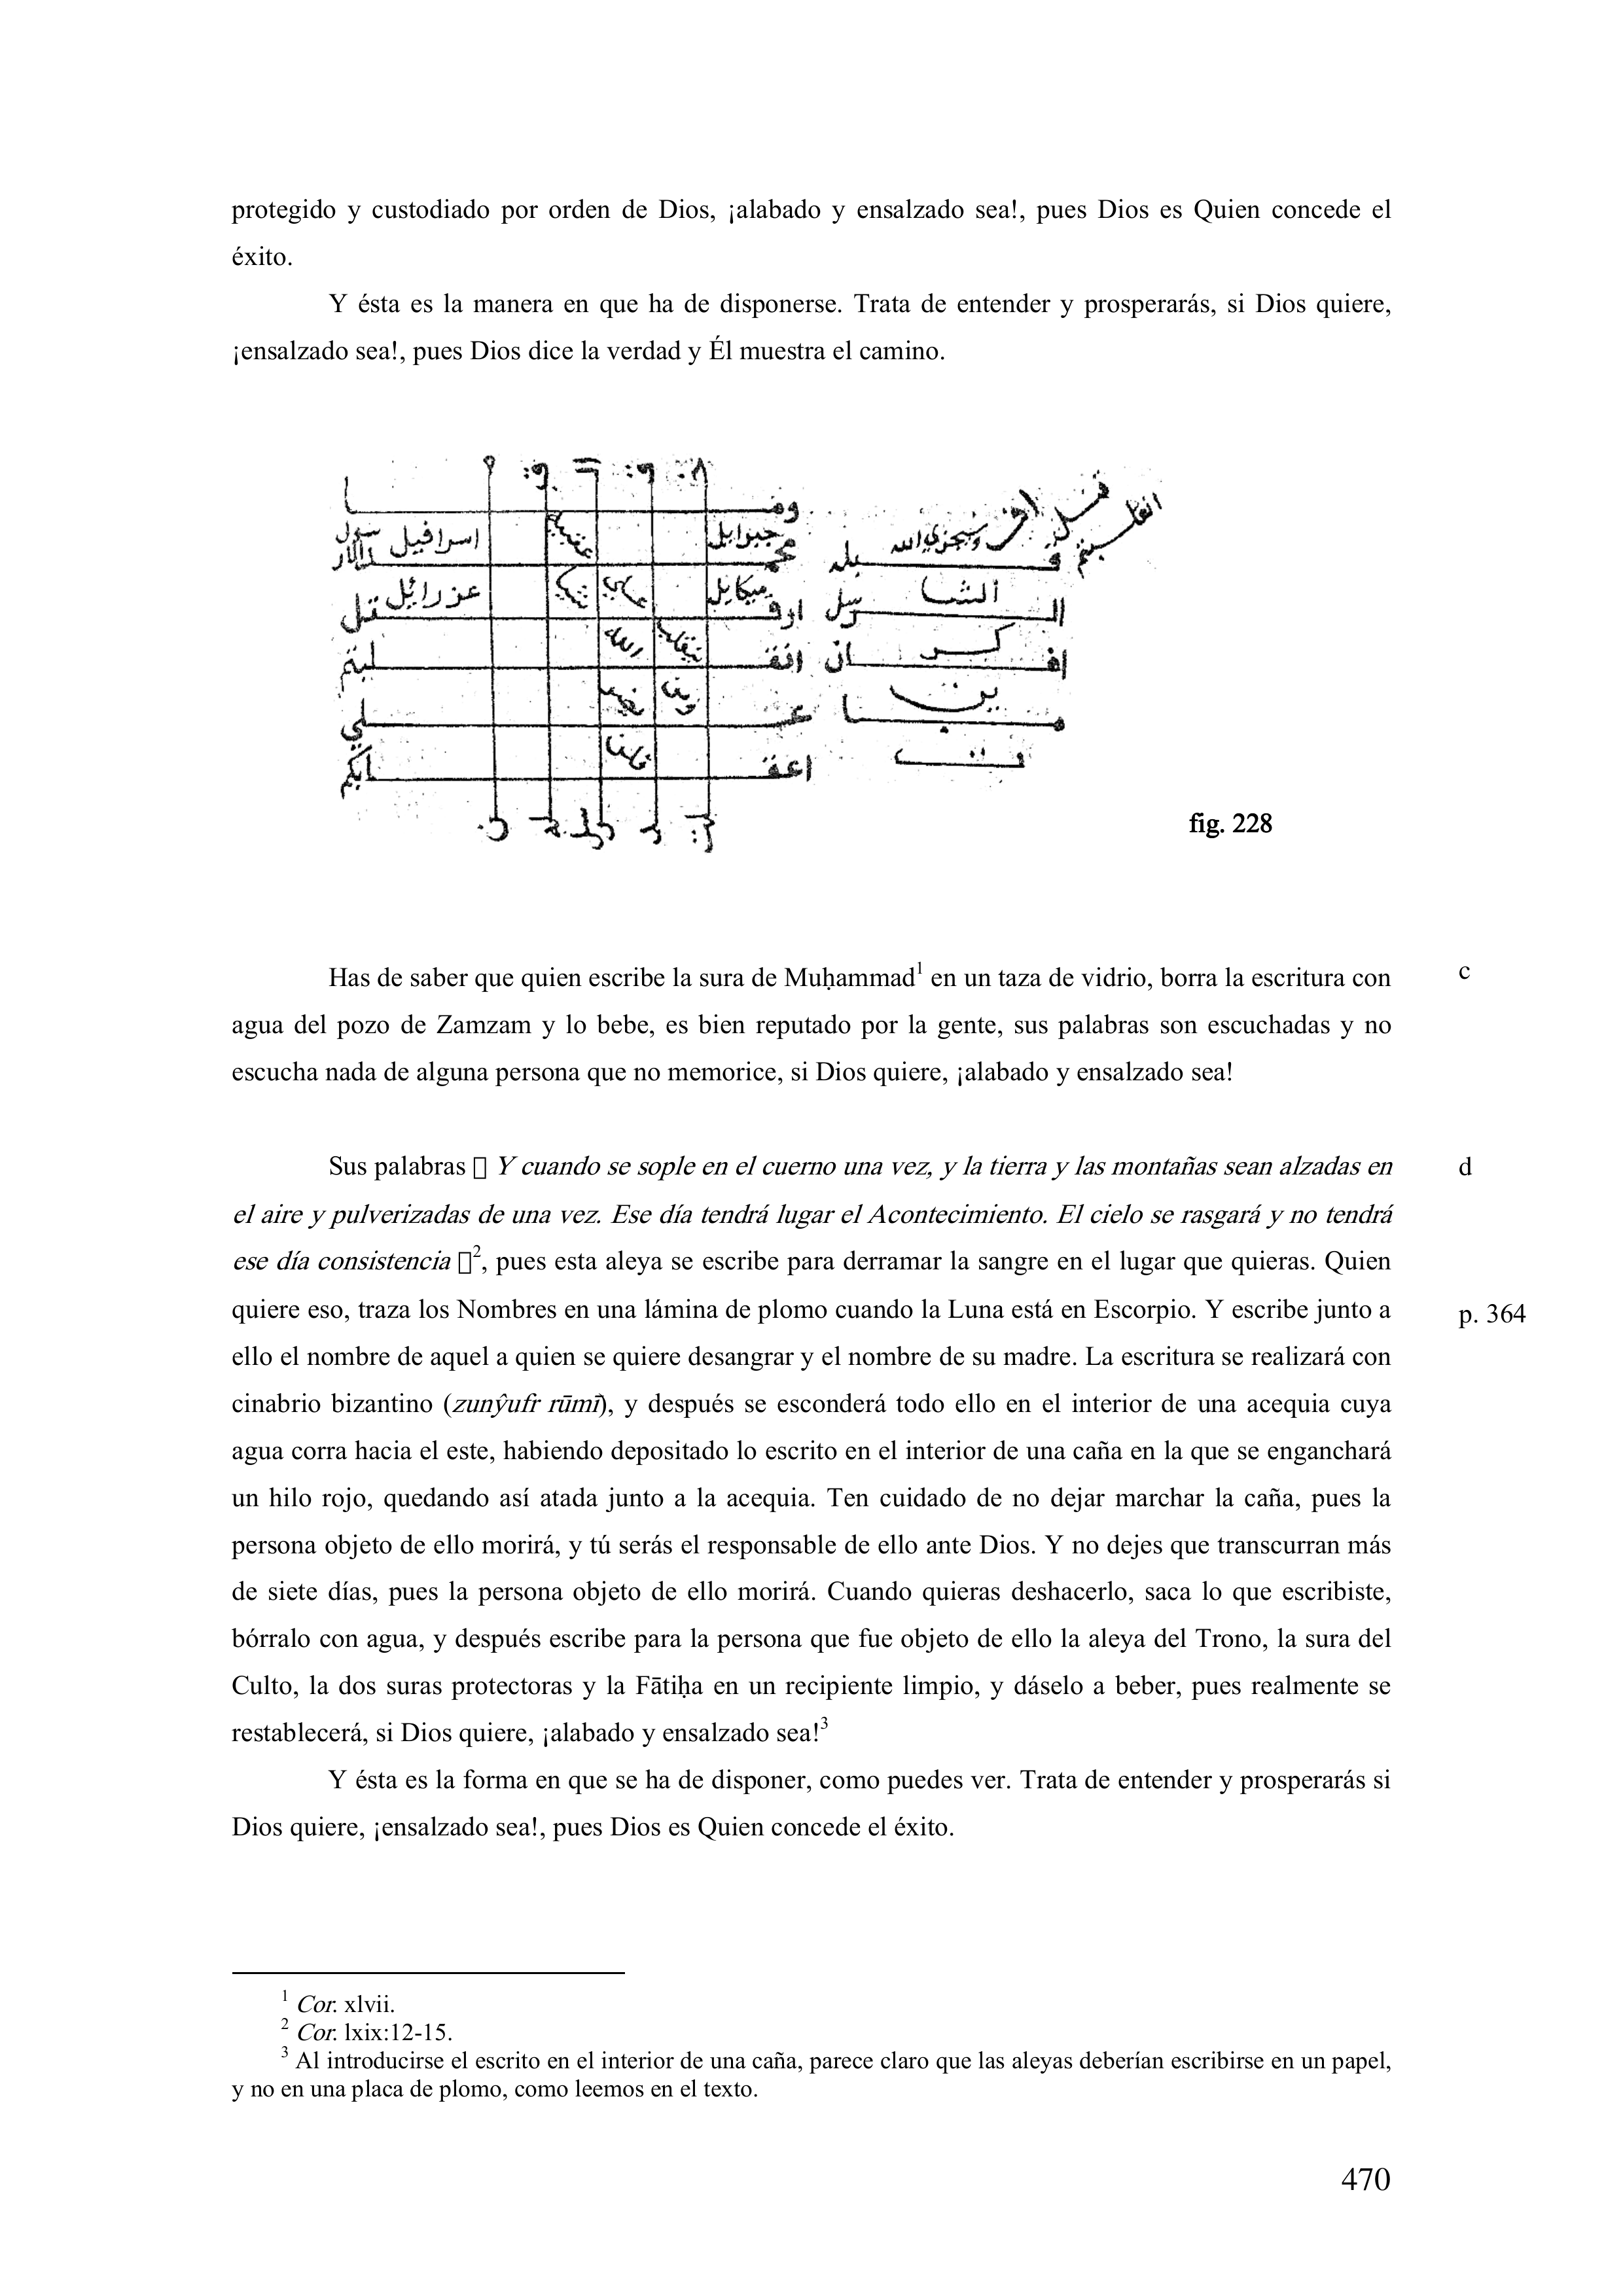 protegido y custodiado por orden de Dios, ¡alabado y ensalzado sea!, pues Dios es Quien concede el
éxito.
Y ésta es la manera en que ha de disponerse. Trata de entender y prosperarás, si Dios quiere,
¡ensalzado sea!, pues Dios dice la verdad y Él muestra el camino.
وسيجزي الله
جبرايل
اسرافيل
ميكايل
عزرائيل
الشا
كر
ين
fig. 228
Has de saber que quien escribe la sura de Muḥammad¹ en un taza de vidrio, borra la escritura con
c
agua del pozo de Zamzam y lo bebe, es bien reputado por la gente, sus palabras son escuchadas y no
escucha nada de alguna persona que no memorice, si Dios quiere, ¡alabado y ensalzado sea!
Sus palabras Y cuando se sople en el cuerno una vez, y la tierra y las montañas sean alzadas en
d
el aire y pulverizadas de una vez. Ese día tendrá lugar el Acontecimiento. El cielo se rasgará y no tendrá
ese día consistencia ², pues esta aleya se escribe para derramar la sangre en el lugar que quieras. Quien
quiere eso, traza los Nombres en una lámina de plomo cuando la Luna está en Escorpio. Y escribe junto a
p. 364
ello el nombre de aquel a quien se quiere desangrar y el nombre de su madre. La escritura se realizará con
cinabrio bizantino (zunŷufr rūmī), y después se esconderá todo ello en el interior de una acequia cuya
agua corra hacia el este, habiendo depositado lo escrito en el interior de una caña en la que se enganchará
un hilo rojo, quedando así atada junto a la acequia. Ten cuidado de no dejar marchar la caña, pues la
persona objeto de ello morirá, y tú serás el responsable de ello ante Dios. Y no dejes que transcurran más
de siete días, pues la persona objeto de ello morirá. Cuando quieras deshacerlo, saca lo que escribiste,
bórralo con agua, y después escribe para la persona que fue objeto de ello la aleya del Trono, la sura del
Culto, la dos suras protectoras y la Fātiḥa en un recipiente limpio, y dáselo a beber, pues realmente se
restablecerá, si Dios quiere, ¡alabado y ensalzado sea!³
Y ésta es la forma en que se ha de disponer, como puedes ver. Trata de entender y prosperarás si
Dios quiere, ¡ensalzado sea!, pues Dios es Quien concede el éxito.
¹ Cor. xlvii.
² Cor. lxix:12-15.
³ Al introducirse el escrito en el interior de una caña, parece claro que las aleyas deberían escribirse en un papel,
y no en una placa de plomo, como leemos en el texto.
470